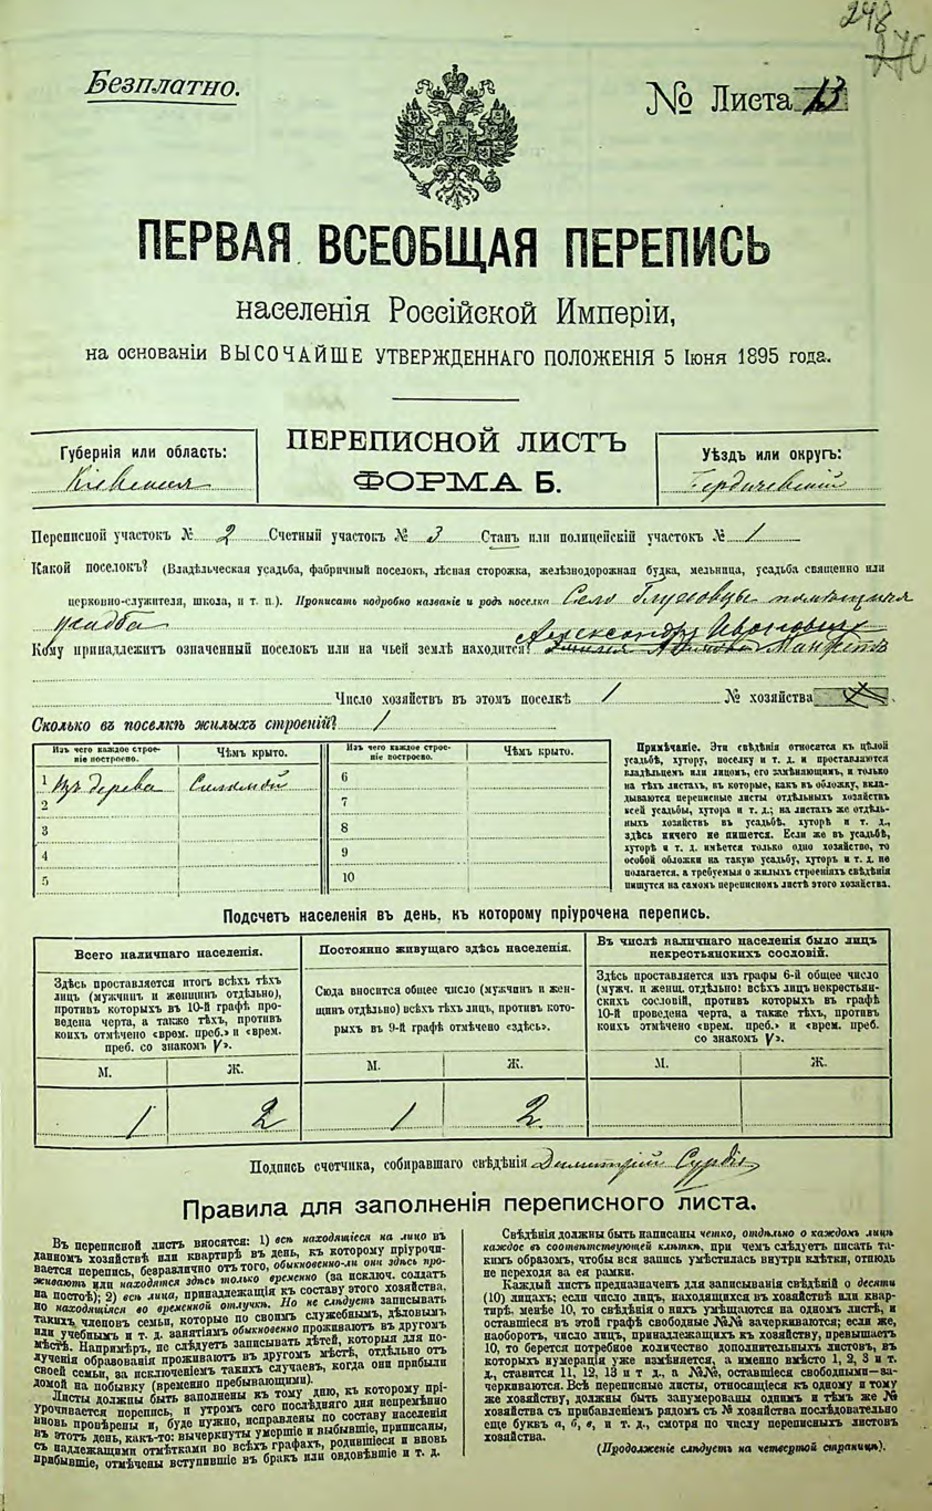 248
270
Безплатно.
№ Листа 13
ПЕРВАЯ ВСЕОБЩАЯ ПЕРЕПИСЬ
населенія Россійской Имперіи,
на основаніи ВЫСОЧАЙШЕ УТВЕРЖДЕННАГО ПОЛОЖЕНІЯ 5 Іюня 1895 года.
Губернія или область:
Кіевская
ПЕРЕПИСНОЙ ЛИСТЪ
ФОРМА Б.
Уѣздъ или округъ:
Бердичевскій
Переписной участокъ № 2 Счетный участокъ № 3 Станъ или полицейскій участокъ № 1
Какой поселокъ? (Владѣльческая усадьба, фабричный поселокъ, лѣсная сторожка, желѣзнодорожная будка, мельница, усадьба священно или
церковно-служителя, школа, и т. п.). Прописать подробно названіе и родъ поселка Село Глуховцы помѣщичья
усадба
Александру Ивановичу
Кому принадлежитъ означенный поселокъ или на чьей землѣ находится?
Число хозяйствъ въ этомъ поселкѣ 1 № хозяйства
Сколько въ поселкѣ жилыхъ строеній? 1
Изъ чего каждое строе-
ніе построено.
Чѣмъ крыто.
Изъ чего каждое строе-
ніе построено.
Чѣмъ крыто.
1 Изъ дерева Соломой
2
3
4
5
6
7
8
9
10
Примѣчаніе. Эти свѣдѣнія относятся къ цѣлой
усадьбѣ, хутору, поселку и т. д. и проставляются
владѣльцемъ или лицомъ, его замѣняющимъ, и только
на тѣхъ листахъ, въ которые, какъ въ обложку, вкла-
дываются переписные листы отдѣльныхъ хозяйствъ
всей усадьбы, хутора и т. д.; на листахъ же отдѣль-
ныхъ хозяйствъ въ усадьбѣ, хуторѣ и т. д.,
здѣсь ничего не пишется. Если же въ усадьбѣ,
хуторѣ и т. д. имѣется только одно хозяйство, то
особой обложки на такую усадьбу, хуторъ и т. д. не
полагается, а требуемыя о жилыхъ строеніяхъ свѣдѣнія
пишутся на самомъ переписномъ листѣ этого хозяйства.
Подсчетъ населенія въ день, къ которому пріурочена перепись.
Всего наличнаго населенія.
Здѣсь проставляется итогъ всѣхъ тѣхъ
лицъ (мужчинъ и женщинъ отдѣльно),
противъ которыхъ въ 10-й графѣ про-
ведена черта, а также тѣхъ, противъ
коихъ отмѣчено «врем. преб.» и «врем.
преб. со знакомъ V».
М. Ж.
1 2
Постоянно живущаго здѣсь населенія.
Сюда вносится общее число (мужчинъ и жен-
щинъ отдѣльно) всѣхъ тѣхъ лицъ, противъ кото-
рыхъ въ 9-й графѣ отмѣчено «здѣсь».
М. Ж.
1 2
Въ числѣ наличнаго населенія было лицъ
некрестьянскихъ сословій.
Здѣсь проставляется изъ графы 6-й общее число
(мужч. и женщ. отдѣльно) всѣхъ лицъ некрестьян-
скихъ сословій, противъ которыхъ въ графѣ
10-й проведена черта, а также тѣхъ, противъ
коихъ отмѣчено «врем. преб.» и «врем. преб.
со знакомъ V».
М. Ж.
Подпись счетчика, собиравшаго свѣдѣнія Димитрій
Правила для заполненія переписного листа.
Въ переписной листъ вносятся: 1) всѣ находящіеся на лицо въ
данномъ хозяйствѣ или квартирѣ въ день, къ которому пріурочи-
вается перепись, безразлично отъ того, обыкновенно-ли они здѣсь про-
живаютъ или находятся здѣсь только временно (за исключ. солдатъ
на постоѣ); 2) всѣ лица, принадлежащія къ составу этого хозяйства,
но находящіяся во временной отлучкѣ. Но не слѣдуетъ записывать
такихъ членовъ семьи, которые по своимъ служебнымъ, дѣловымъ
или учебнымъ и т. д. занятіямъ обыкновенно проживаютъ въ другомъ
мѣстѣ. Напримѣръ, не слѣдуетъ записывать дѣтей, которыя для по-
лученія образованія проживаютъ въ другомъ мѣстѣ, отдѣльно отъ
своей семьи, за исключеніемъ такихъ случаевъ, когда они прибыли
домой на побывку (временно пребывающими).
Листы должны быть заполнены къ тому дню, къ которому прі-
урочивается перепись, и утромъ сего послѣдняго дня непремѣнно
вновь провѣрены и, буде нужно, исправлены по составу населенія
въ этотъ день, какъ-то: вычеркнуты умершіе и выбывшіе, приписаны,
съ надлежащими отмѣтками во всѣхъ графахъ, родившіеся и вновь
прибывшіе, отмѣчены вступившіе въ бракъ или овдовѣвшіе и т. д.
Свѣдѣнія должны быть написаны четко, отдѣльно о каждомъ лицѣ
каждое въ соотвѣтствующей клѣткѣ, при чемъ слѣдуетъ писать та-
кимъ образомъ, чтобы вся запись умѣстилась внутри клѣтки, отнюдь
не переходя за ея рамки.
Каждый листъ предназначенъ для записыванія свѣдѣній о десяти
(10) лицахъ; если число лицъ, находящихся въ хозяйствѣ или квар-
тирѣ, менѣе 10, то свѣдѣнія о нихъ умѣщаются на одномъ листѣ, и
оставшіеся въ этой графѣ свободные №№ зачеркиваются; если же,
наоборотъ, число лицъ, принадлежащихъ къ хозяйству, превышаетъ
10, то берется потребное количество дополнительныхъ листовъ, въ
которыхъ нумерація уже измѣняется, а именно вмѣсто 1, 2, 3 и т.
д., ставится 11, 12, 13 и т. д., а №№, оставшіеся свободными—за-
черкиваются. Всѣ переписные листы, относящіеся къ одному и тому
же хозяйству, должны быть занумерованы однимъ и тѣмъ же №
хозяйства съ прибавленіемъ рядомъ съ № хозяйства послѣдовательно
еще буквъ а, б, в, и т. д., смотря по числу переписныхъ листовъ
хозяйства.
(Продолженіе слѣдуетъ на четвертой страницѣ).